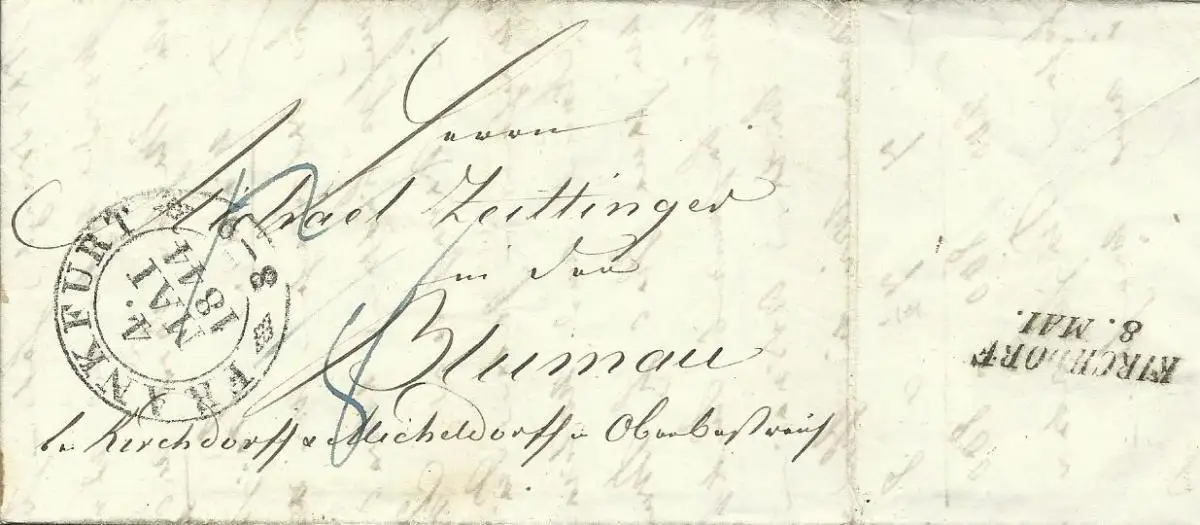 Herrn
Michael Zeitlinger
in der
Blumau
bei Kirchdorff & Micheldorff in Oberöstreich
FRANKFURT
4.
MAI
1844
8
KIRCHDORF
8. MAI.